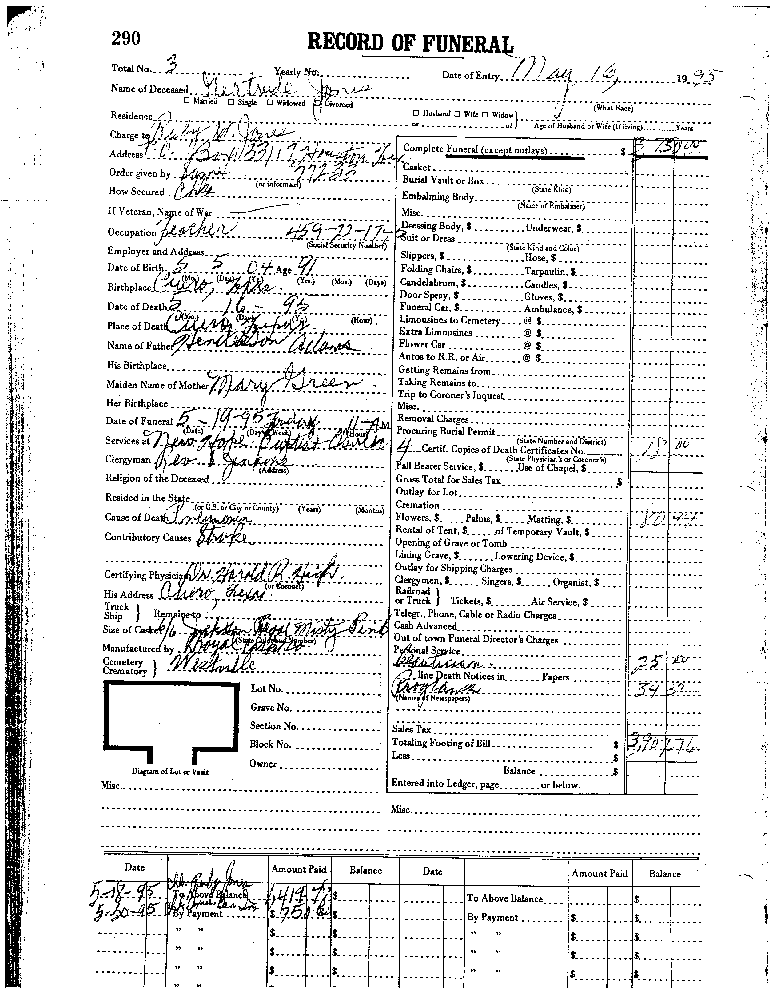 290
RECORD OF FUNERAL
Total No. 3 Yearly No. Date of Entry May 16, 1995
Name of Deceased Gertrude Jones
Married Single Widowed Divorced
Husband Wife Widow of (What Name)
Residence
Age of Husband or Wife (If living) Years
Charge to Ruby W. Jones
Address P.O. Box Houston
Order given by (or informant)
How Secured
If Veteran, Name of War
Occupation (Social Security Number)
Employer and Address
Date of Birth 5 5 04 Age 91
(Mo.) (Day) (Yr.) (Yrs.) (Mos.) (Days)
Birthplace Cuero, Texas
Date of Death 5 16 - 95
(Mo.) (Day) (Yr.) (Hour)
Place of Death Cuero Texas
Name of Father Henderson Adams
His Birthplace
Maiden Name of Mother Mary Green
Her Birthplace
Date of Funeral 5 - 19-95 Friday 11 AM
(Date) (Day of Week) (Hour)
Services at New Hope Baptist Church
Clergyman Rev. Jenkins
(Address)
Religion of the Deceased
Resided in the State
(or U.S. or City or County) (Years) (Months)
Cause of Death Pneumonia
Contributory Causes Stroke
Certifying Physician Dr. Harold R. High
(or Coroner)
His Address Cuero, Texas
Truck
Ship } Remains to
Size of Casket 6/6 Misty Pink
(State Color and Number)
Manufactured by Royal
Cemetery
Crematory } Westville
Lot No.
Grave No.
Section No.
Block No.
Owner
Diagram of Lot or Vault
Misc.
Complete Funeral (except outlays) $
Casket
Burial Vault or Box
(State Kind)
Embalming Body
(Name of Embalmer)
Misc.
Dressing Body, $ Underwear, $
Suit or Dress
(State Kind and Color)
Slippers, $ Hose, $
Folding Chairs, $ Tarpaulin, $
Candelabrum, $ Candles, $
Door Spray, $ Gloves, $
Funeral Car, $ Ambulance, $
Limousines to Cemetery @ $
Extra Limousines @ $
Flower Car @ $
Autos to R.R. or Air @ $
Getting Remains from
Taking Remains to
Trip to Coroner's Inquest
Misc.
Removal Charges
Procuring Burial Permit
(State Number and District)
4 Certif. Copies of Death Certificates No.
(State Physician's or Coroner's)
Pall Bearer Service, $ Use of Chapel, $
Gross Total for Sales Tax $
Outlay for Lot
Cremation
Flowers, $ Palms, $ Matting, $
Rental of Tent, $ of Temporary Vault, $
Opening of Grave or Tomb
Lining Grave, $ Lowering Device, $
Outlay for Shipping Charges
Clergymen, $ Singers, $ Organist, $
Railroad
or Truck } Tickets, $ Air Service, $
Telegr., Phone, Cable or Radio Charges
Cash Advanced
Out of town Funeral Director's Charges
Personal Service
Beautician 25 00
line Death Notices in Papers
Programs
(Names of Newspapers)
Sales Tax
Totaling Footing of Bill $
Less $
Balance $
Entered into Ledger, page or below.
Misc.
Date Amount Paid Balance Date Amount Paid Balance
5-18-95 To Above Balance $ To Above Balance $
5-20-95 By Payment $ 750 $ By Payment $
" " $ " " $
" " $ " " $
" " $ " " $